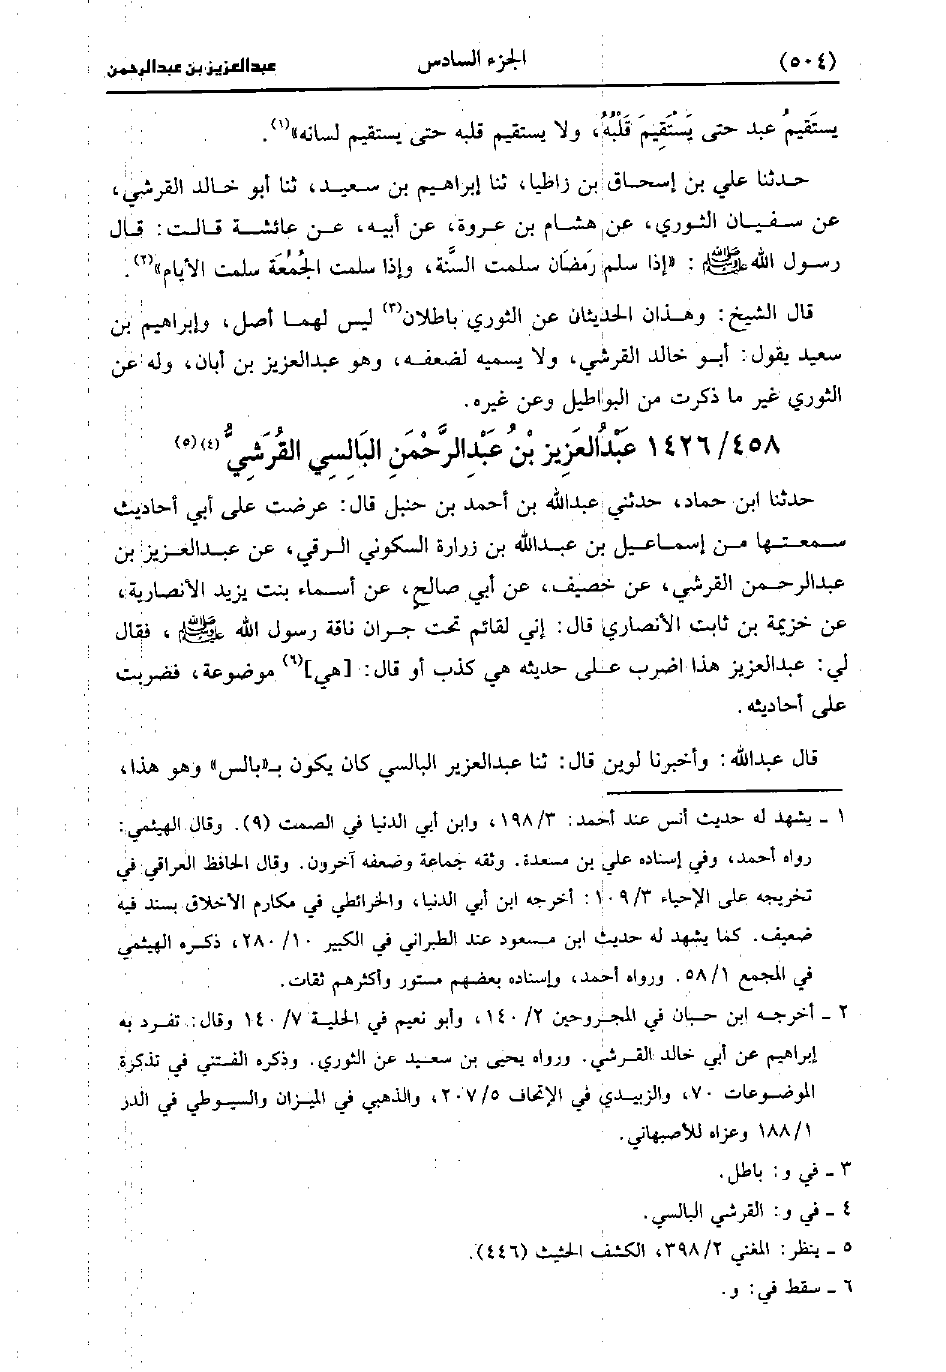 (٥٠٤) الجزء السادس عبدالعزيز بن عبدالرحمن
يستَقيمُ عبد حتى يَسْتَقِيمَ قَلْبُهُ، ولا يستقيم قلبه حتى يستقيم لسانه»(١).
حدثنا علي بن إسحاق بن زاطيا، ثنا إبراهيم بن سعيد، ثنا أبو خالد القرشي،
عن سفيان الثوري، عن هشام بن عروة، عن أبيه، عن عائشة قالت: قال
رسول الله ﷺ: «إذا سلم رَمَضَان سلمت السنَّة، وإذا سلمت الجُمُعَة سلمت الأيام»(٢).
قال الشيخ: وهذان الحديثان عن الثوري باطلان(٣) ليس لهما أصل، وإبراهيم بن
سعيد يقول: أبو خالد القرشي، ولا يسميه لضعفه، وهو عبدالعزيز بن أبان، وله عن
الثوري غير ما ذكرت من البواطيل وعن غيره.
١٤٢٦/٤٥٨ عَبْدُالعَزِيزِ بْنُ عَبْدِالرَّحْمَنِ البَالِسِي القُرَشِيُّ(٤)(٥)
حدثنا ابن حماد، حدثني عبدالله بن أحمد بن حنبل قال: عرضت على أبي أحاديث
سمعتها من إسماعيل بن عبدالله بن زرارة السكوني الرقي، عن عبدالعزيز بن
عبدالرحمن القرشي، عن خصيف، عن أبي صالح، عن أسماء بنت يزيد الأنصارية،
عن خزيمة بن ثابت الأنصاري قال: إني لقائم تحت جران ناقة رسول الله ﷺ، فقال
لي: عبدالعزيز هذا اضرب على حديثه هي كذب أو قال: [هي](٦) موضوعة، فضربت
على أحاديثه.
قال عبدالله: وأخبرنا لوين قال: ثنا عبدالعزير البالسي كان يكون بـ«بالس» وهو هذا،
١ ـ يشهد له حديث أنس عند أحمد: ١٩٨/٣، وابن أبي الدنيا في الصمت (٩). وقال الهيثمي:
رواه أحمد، وفي إسناده علي بن مسعدة. وثقه جماعة وضعفه آخرون. وقال الحافظ العراقي في
تخريجه على الإحياء ١٠٩/٣: أخرجه ابن أبي الدنيا، والخرائطي في مكارم الأخلاق بسند فيه
ضعيف. كما يشهد له حديث ابن مسعود عند الطبراني في الكبير ٢٨٠/١٠، ذكره الهيثمي
في المجمع ٥٨/١. ورواه أحمد، وإسناده بعضهم مستور وأكثرهم ثقات.
٢ ـ أخرجه ابن حبان في المجروحين ١٤٠/٢، وأبو نعيم في الحلية ١٤٠/٧ وقال: تفرد به
إبراهيم عن أبي خالد القرشي. ورواه يحيى بن سعيد عن الثوري. وذكره الفتني في تذكرة
الموضوعات ٧٠، والزبيدي في الإتحاف ٢٠٧/٥، والذهبي في الميزان والسيوطي في الدر
١٨٨/١ وعزاه للأصبهاني.
٣ ـ في و: باطل.
٤ ـ في و: القرشي البالسي.
٥ ـ ينظر: المغني ٣٩٨/٢، الكشف الحثيث (٤٤٦).
٦ ـ سقط في: و.